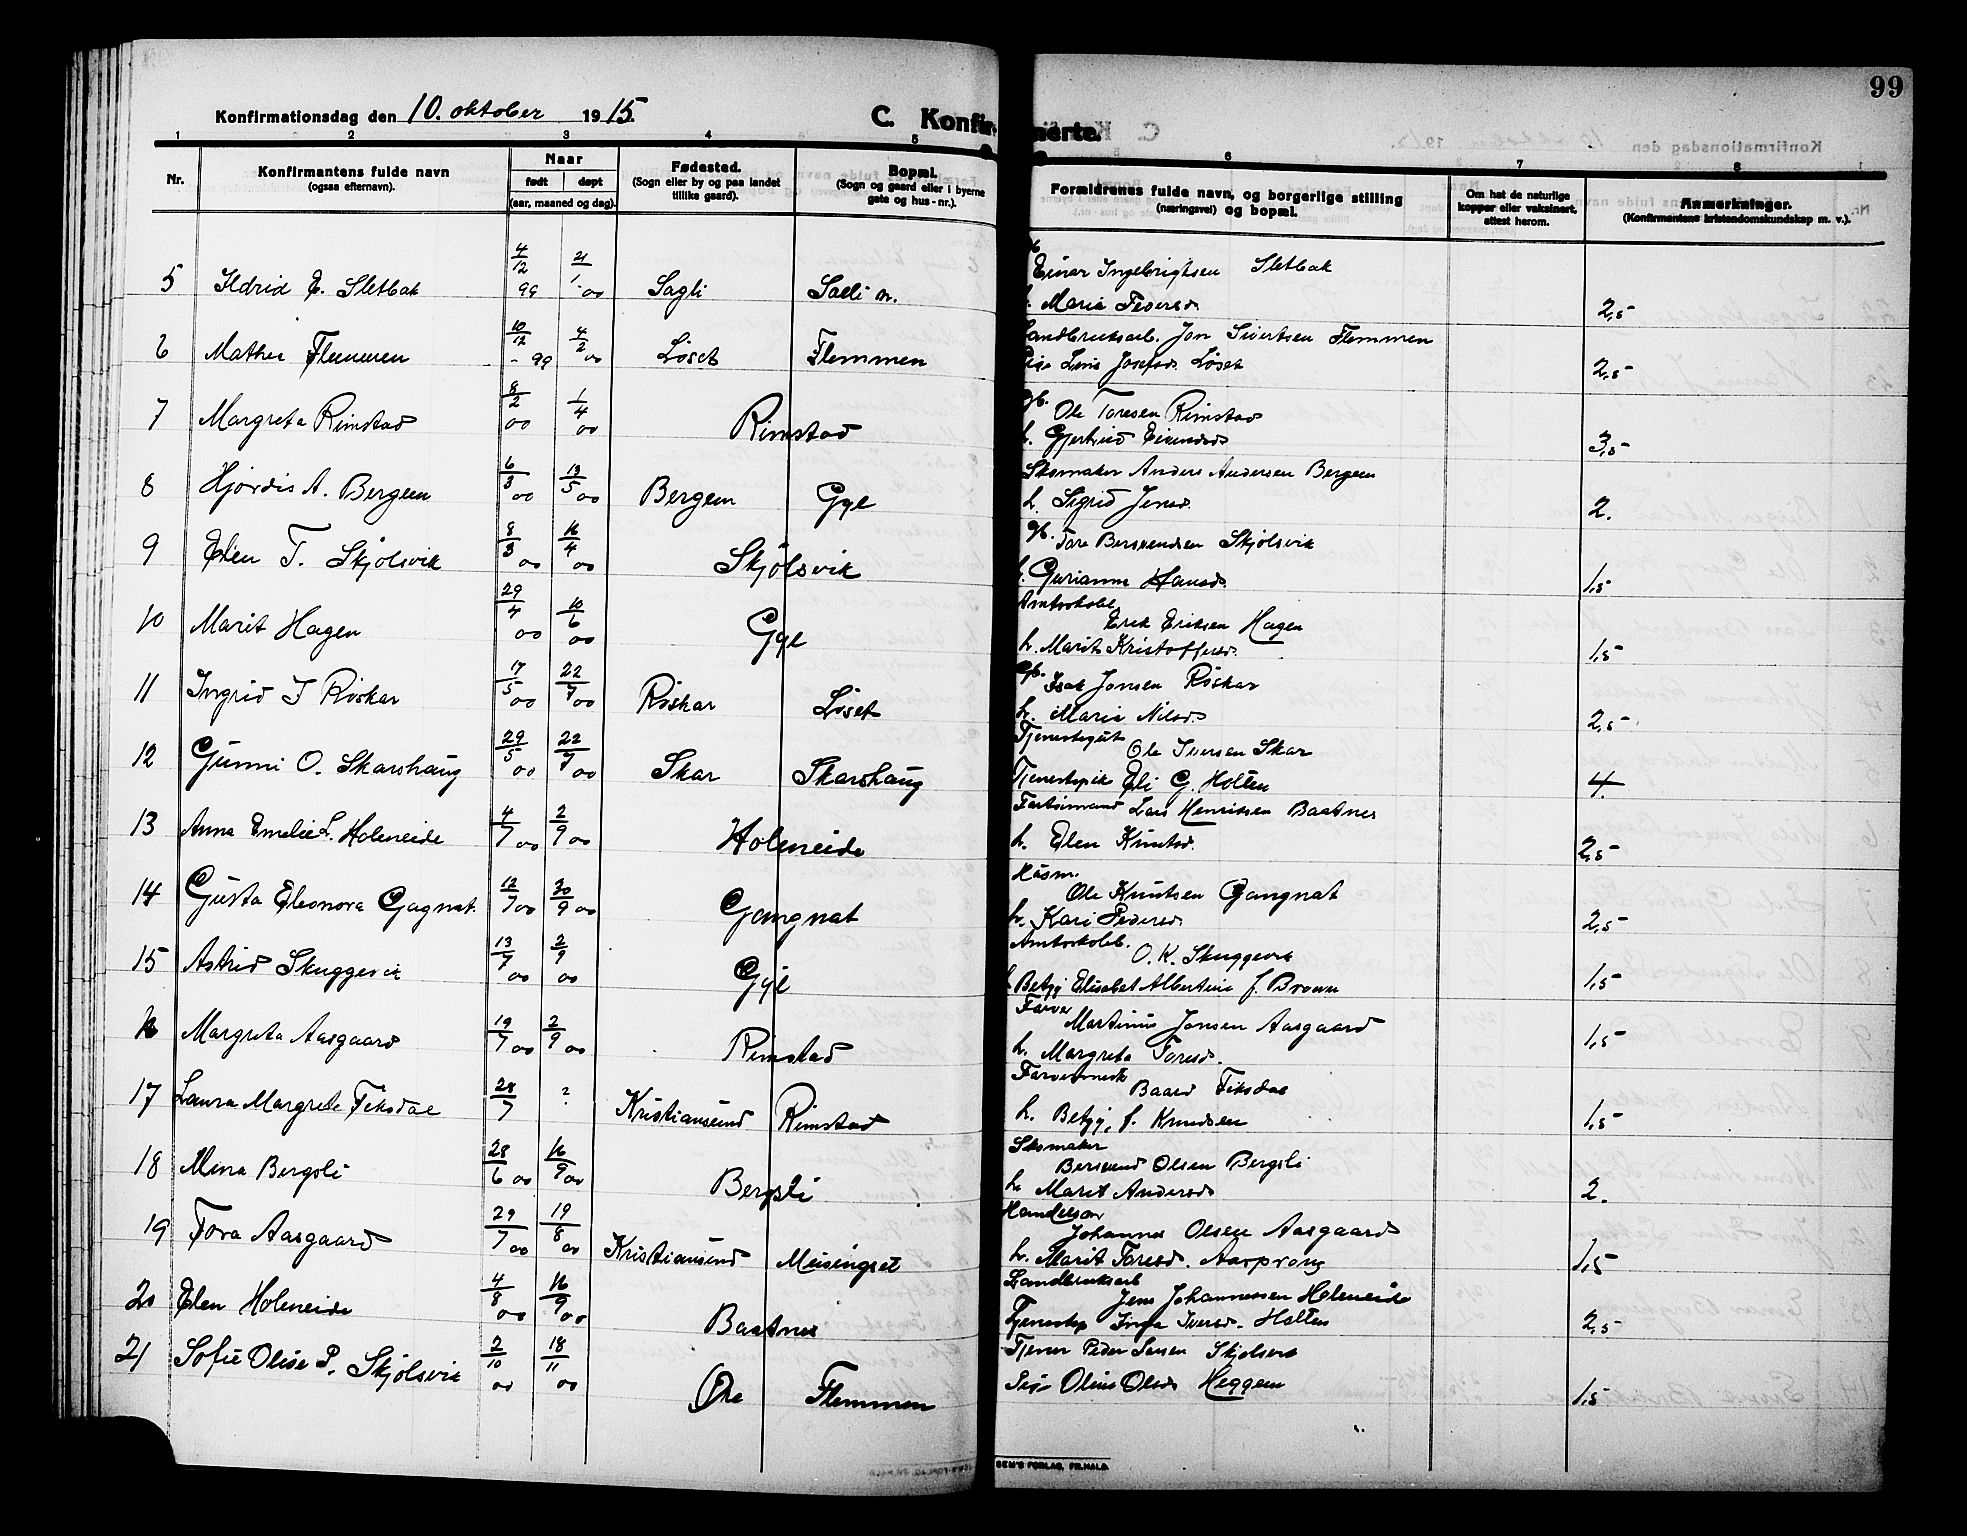 99
Konfirmationsdag den 10. oktober 1915.
C. Konfirmerte.
1 2 3 4 5 6 7 8
Nr.
Konfirmantens fulde navn
(ogsaa efternavn).
Naar
født døpt
(aar, maaned og dag).
Fødested.
(Sogn eller by og paa landet
tillike gaard).
Bopæl.
(Sogn og gaard eller i byerne
gate og hus-nr.).
Forældrenes fulde navn, og borgerlige stilling
(næringsvei) og bopæl.
Om hat de naturlige
kopper eller vaksinert,
attest herom.
Anmerkninger.
(Konfirmantens kristendomskundskap m. v.).
5 Ildrid E. Sletbak 4/12 99 21/1 00 Sagli
Einar Ingebrigtsen Sletbak
Maria Pedersd. 2,5
6 Mathea Flemmen 10/12 - 99 4/2 00 Løset Flemmen
Landbruksarb. Jon Sivertsen Flemmen
Pige Josefsd. Løset 2,5
7 Margreta Rimstad 8/2 00 1/4 00 Rimstad
Gb. Ole Toresen Rimstad
h. Gjertrud 3,5
8 Hjørdis A. Bergem 6/3 00 13/5 00 Bergem Gyl
Skomaker Anders Andersen Bergem
h. Sigrid Jensd. 2.
9 Elen T. Skjølsvik 8/3 00 16/4 00 Skjølsvik
Gb. Tore Bersvendsen Skjølsvik
h. Gurianna Hansd. 1,5
10 Marit Hagen 29/4 00 10/6 00 Gyl
Amtsskolel.
Erik Eriksen Hagen
h. Marit Kristoffersd. 1,5
11 Ingrid I Røskar 17/5 00 22/7 00 Røskar Løset
Gb. Isak Jonsen Røskar
h. Maria Nilsd. 2,5
12 Gunni O. Skarshaug 29/5 00 22/7 00 Skar Skarshaug
Tjenestegut
Ole Iversen Skar
Tjenestepik Eli G. Holten 4.
13 Anna Emelie L. Holeneide 4/7 00 2/9 00 Holeneide
Lars Henriksen Baatnes
h. Elen Knutsd. 2,5
14 Gusta Eleonora Gagnat. 12/7 00 30/9 00 Gangnat
Husm.
Ole Knutsen Gangnat
h. Kari Pedersd. 2,5
15 Astrid Skuggevik 13/7 00 2/9 00 Gyl
Amtsskolel.
O. K. Skuggevik
h Betzy Elisabet Albertine f. Brown 1,5
16 Margreta Aasgaard 19/7 00 2/9 00 Rimstad
Farver
Martinus Jonsen Aasgaard
h. Margreta Toresd. 1,5
17 Laura Margrete Fiksdal 28/7 ? Kristiansund Rimstad
Baard Fiksdal
h. Betzy, f. Knudsen 1,5
18 Mina Bergsli 28/6 00 16/9 00 Bergsli
Skomaker
Bersvend Olsen Bergsli
h. Marit Andersd. 2.
19 Tora Aasgaard 29/7 00 19/8 00 Kristiansund Meisingset
Johannes Olsen Aasgaard
h. Marit Toresd. Aasprong 1,5
20 Elen Holeneide 4/8 00 16/9 00 Baatnes
Landbruksarb
Jens Johannessen Holeneide
Tjenestep Inga Iversd. Holten 2,5
21 Sofie Olise P. Skjølsvik 2/10 00 18/11 00 Øre Flemmen
Tjener Peder Larsen Skjølsvik
Pige Oline Olsd. Heggem 1,5